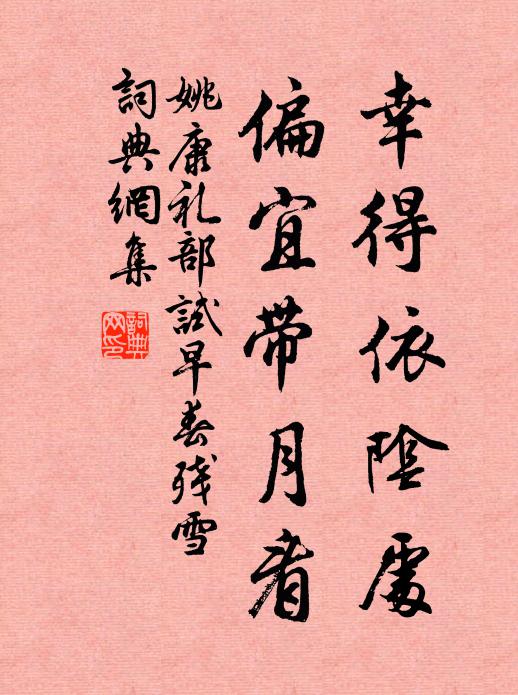 幸得依陰處
偏宜带月看
姚康礼部試早春殘雪
詞典網集
詞典網印